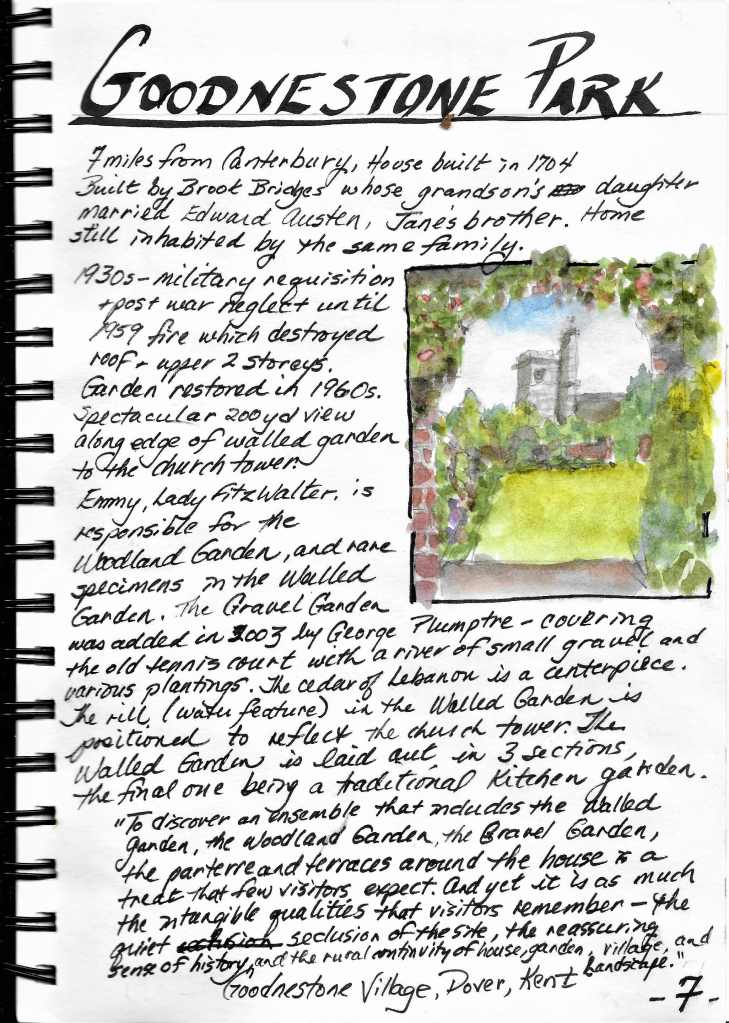 GOODNESTONE PARK
7 miles from Canterbury, House built in 1704
Built by Brook Bridges whose grandson's daughter
married Edward Austen, Jane's brother. Home
still inhabited by the same family.
1930s - military requisition
+ post war neglect until
1959 fire which destroyed
roof + upper 2 storeys.
Garden restored in 1960s.
Spectacular 200 yd view
along edge of walled garden
to the church tower.
Emmy, Lady FitzWalter, is
responsible for the
Woodland Garden, and rare
specimens in the Walled
Garden. The Gravel Garden
was added in 2003 by George Plumptre - covering
the old tennis court with a river of small gravel and
various plantings. The cedar of Lebanon is a centerpiece.
The rill, (water feature) in the Walled Garden is
positioned to reflect the church tower. The
Walled Garden is laid out, in 3 sections,
the final one being a traditional Kitchen garden.
"To discover an ensemble that includes the Walled
Garden, the Woodland Garden, the Gravel Garden,
the parterre and terraces around the house is a
treat that few visitors expect. And yet it is as much
the intangible qualities that visitors remember - the
quiet seclusion of the site, the reassuring
sense of history, and the rural continuity of house, garden, village, and
landscape."
Goodnestone Village, Dover, Kent
- 7 -